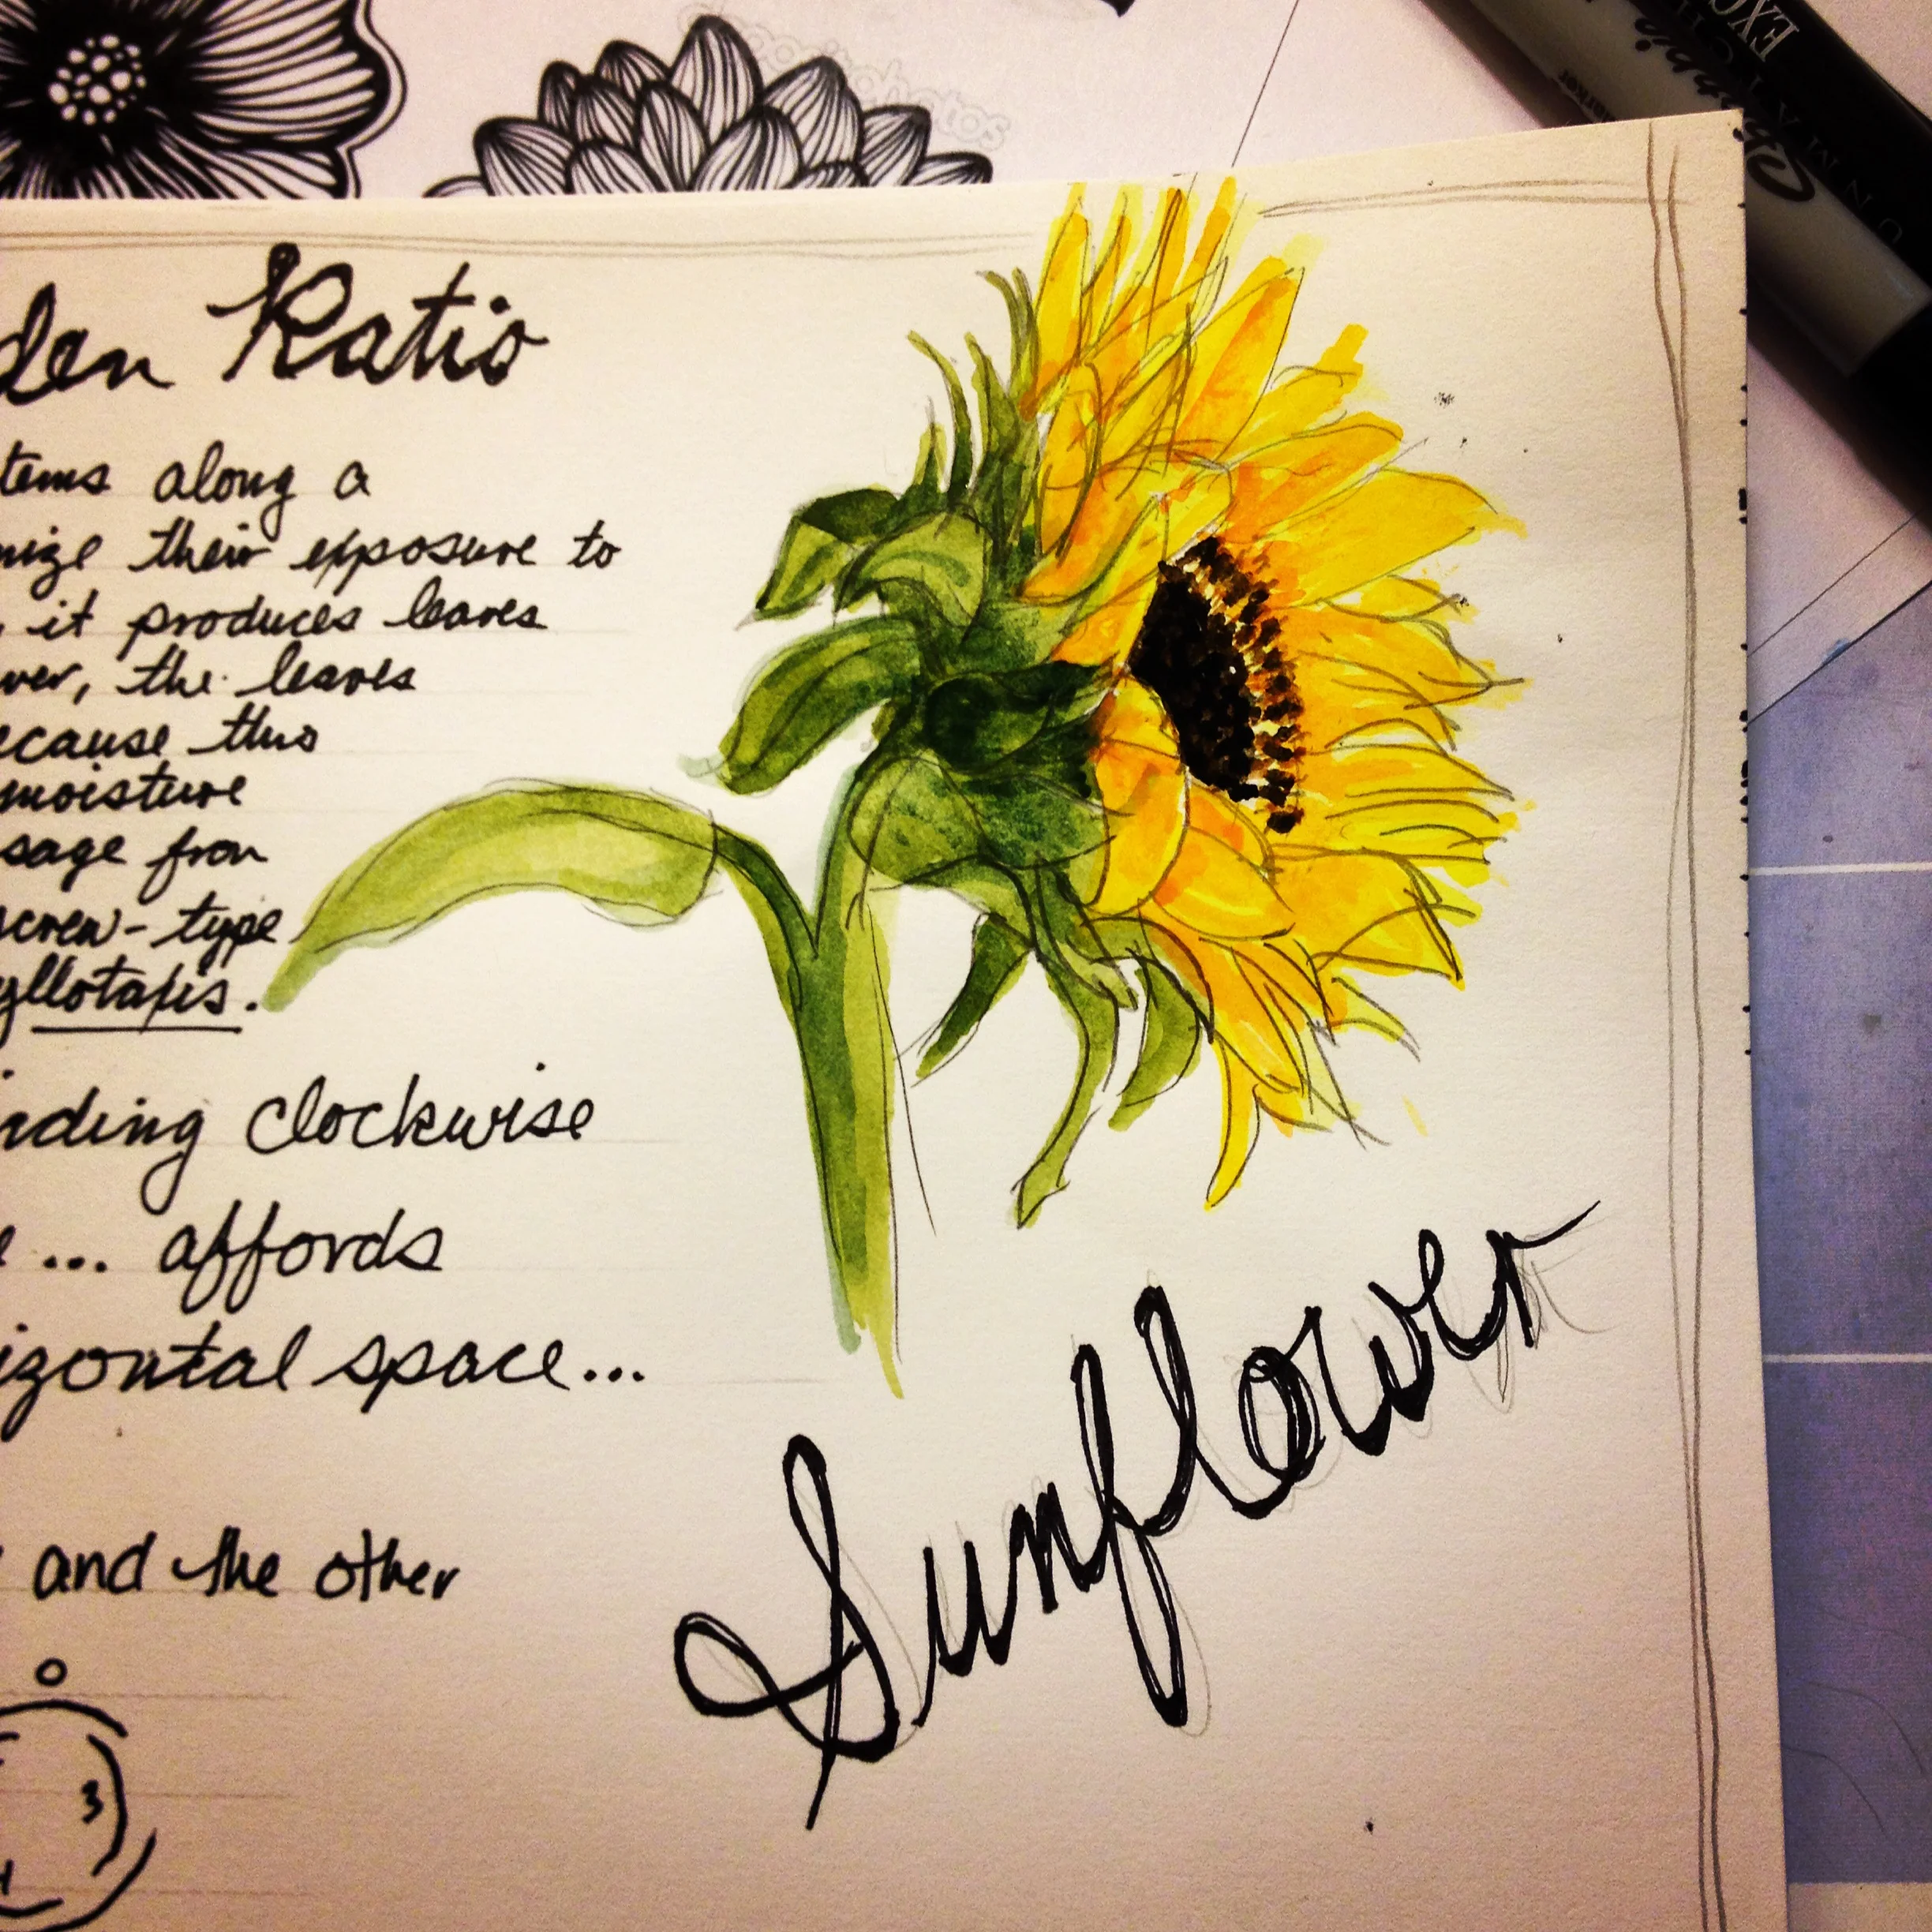 den Ratio
tems along a
mize their exposure to
, it produces leaves
ver, the leaves
ecause this
moisture
sage from
screw-type
yllotaxis.
nding clockwise
e ... affords
izontal space...
and the other
3
Sunflower